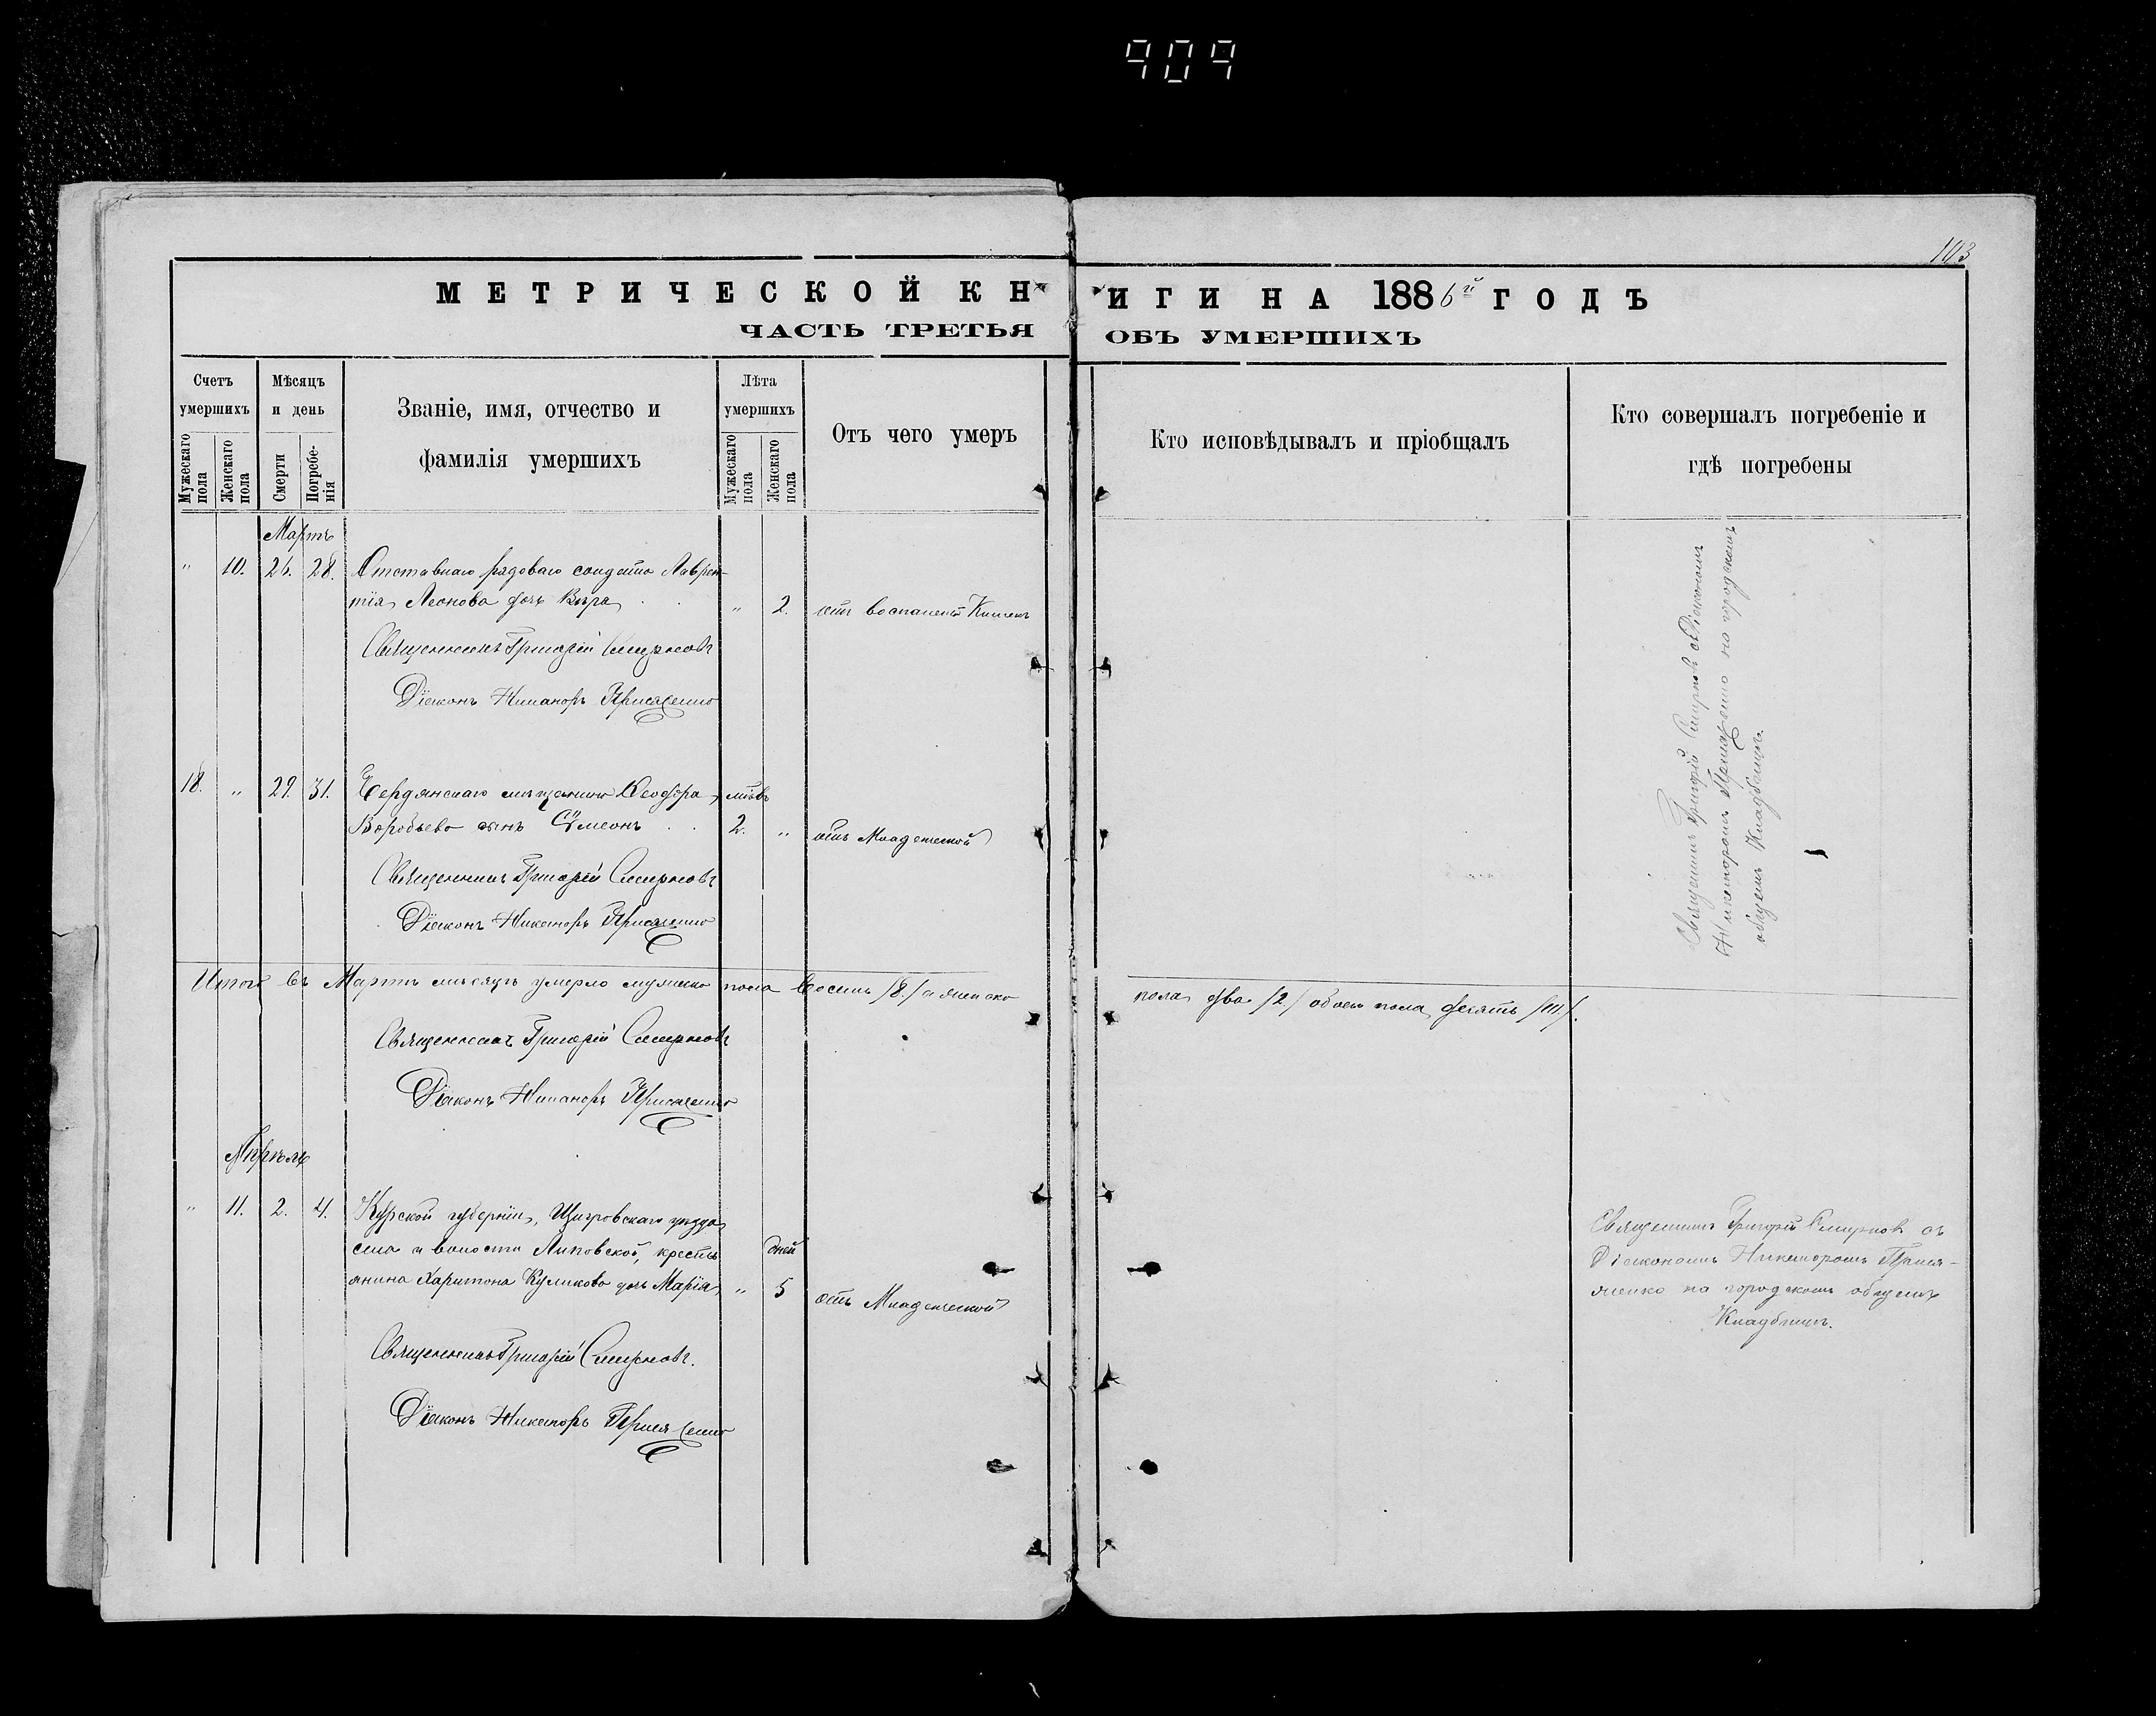 909
103
МЕТРИЧЕСКОЙ КНИГИ НА 1886й ГОДЪ
ЧАСТЬ ТРЕТЬЯ ОБЪ УМЕРШИХЪ
Счетъ умершихъ
Мужескаго пола
Женскаго пола
Мѣсяцъ и день
Смерти
Погребенія
Званіе, имя, отчество и
фамилія умершихъ
Лѣта умершихъ
Мужескаго пола
Женскаго пола
Отъ чего умеръ
Кто исповѣдывалъ и пріобщалъ
Кто совершалъ погребеніе и
гдѣ погребены
Мартъ
" 10. 26. 28. Отставнаго рядоваго солдата Лаврен-
тія Леонова дочь Вѣра " 2. отъ воспаленія Кишекъ
Священникъ Григорій Смирновъ
Діаконъ Никаноръ Присяженко
Священникъ Григорій Смирновъ съ Діакономъ
Никаноромъ Присяженко на городскомъ
общемъ Кладбищѣ.
18. " 29. 31. Бердянскаго мѣщанина Ѳеодора лѣтъ
Воробьева сынъ Сѵмеонъ 2. " отъ Младенческой
Священникъ Григорій Смирновъ
Діаконъ Никаноръ Присяженко
Итого въ Мартѣ мѣсяцѣ умерло мужеска пола восемь /8./ а женска пола два /2./ обоего пола десять /10./.
Священникъ Григорій Смирновъ
Діаконъ Никаноръ Присяженко
Апрѣль
" 11. 2. 4. Курской губерніи, Щигровскаго уѣзда
села и волости Липовской, кресть- дней
янина Харитона Куликова дочь Марія " 5 отъ Младенческой
Священникъ Григорій Смирновъ.
Діаконъ Никаноръ Присяженко
Священникъ Григорій Смирновъ съ
Діакономъ Никаноромъ Прися-
женко на городскомъ общемъ
Кладбищѣ.